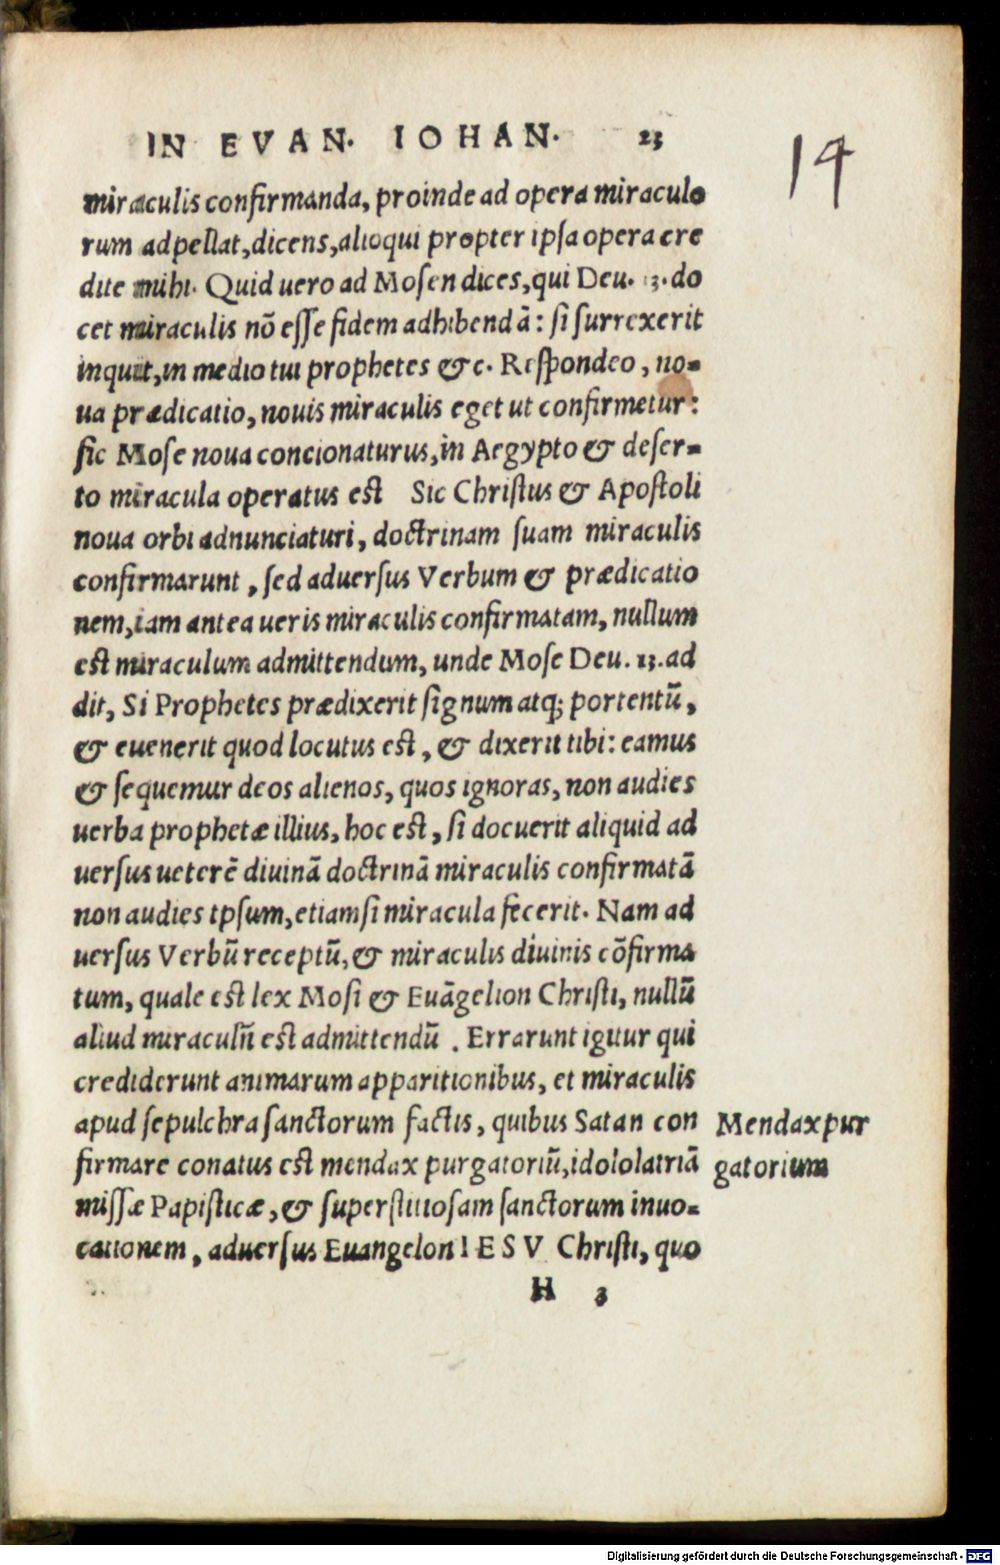 IN EVAN. IOHAN. 23
14
miraculis confirmanda, proinde ad opera miraculo
rum adpellat, dicens, alioqui propter ipsa opera cre
dite mihi. Quid uero ad Mosen dices, qui Deu. 13. do
cet miraculis nõ esse fidem adhibendã: si surrexerit
inquit, in medio tui prophetes &c. Respondeo, no-
ua prædicatio, nouis miraculis eget ut confirmetur:
sic Mose noua concionaturus, in Aegypto & deser-
to miracula operatus est Sic Christus & Apostoli
noua orbi adnunciaturi, doctrinam suam miraculis
confirmarunt, sed aduersus Verbum & prædicatio
nem, iam antea ueris miraculis confirmatam, nullum
est miraculum admittendum, unde Mose Deu. 13. ad
dit, Si Prophetes prædixerit signum atq; portentũ,
& euenerit quod locutus est, & dixerit tibi: eamus
& sequemur deos alienos, quos ignoras, non audies
uerba prophetæ illius, hoc est, si docuerit aliquid ad
uersus ueterẽ diuinã doctrinã miraculis confirmatã
non audies ipsum, etiamsi miracula fecerit. Nam ad
uersus Verbũ receptũ, & miraculis diuinis cõfirma
tum, quale est lex Mosi & Euãgelion Christi, nullũ
aliud miraculũ est admittendũ. Errarunt igitur qui
crediderunt animarum apparitionibus, et miraculis
apud sepulchra sanctorum factis, quibus Satan con
firmare conatus est mendax purgatoriũ, idololatriã
missæ Papisticæ, & superstitiosam sanctorum inuo-
cationem, aduersus Euangelon IESV Christi, quo
Mendax pur
gatorium
H 3
Digitalisierung gefördert durch die Deutsche Forschungsgemeinschaft - DFG